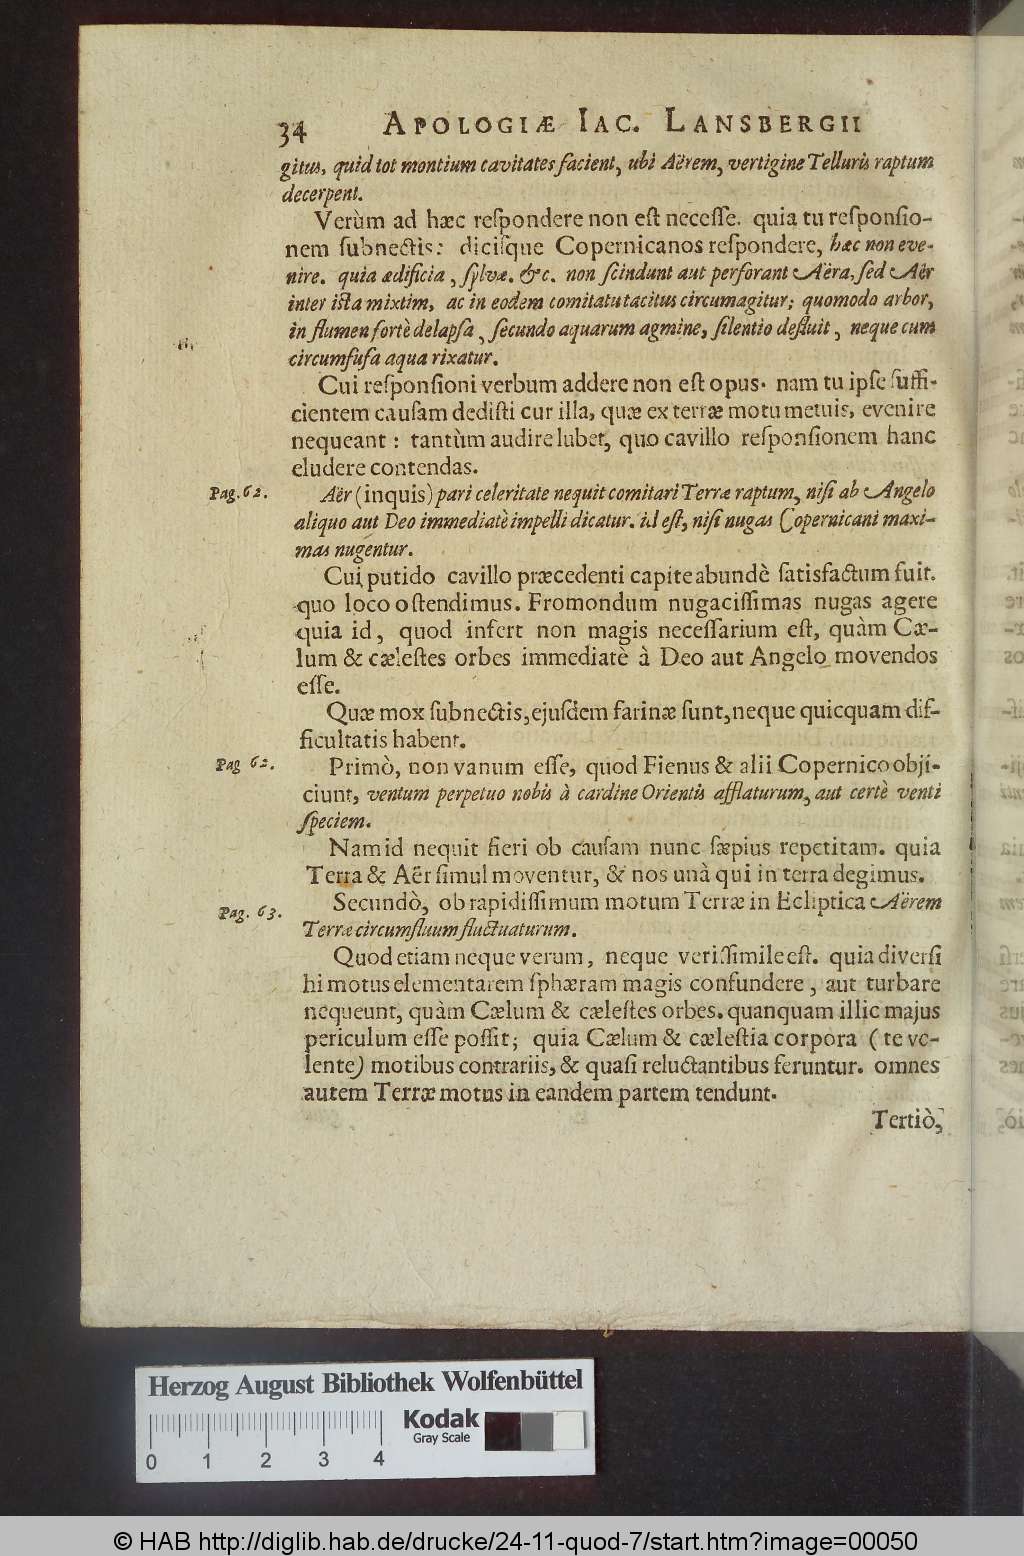 34 APOLOGIÆ IAC. LANSBERGII
gitus, quid tot montium cavitates facient, ubi Aërem, vertigine Telluris raptum
decerpent.
Verùm ad hæc reſpondere non eſt neceſſe. quia tu reſponſio-
nem ſubnectis: diciſque Copernicanos reſpondere, hæc non eve-
nire. quia ædificia, ſylvæ. &c. non ſcindunt aut perforant Aëra, ſed Aër
inter iſta mixtim, ac in eodem comitatu tacitus circumagitur; quomodo arbor,
in flumen fortè delapſa, ſecundo aquarum agmine, ſilentio defluit, neque cum
circumfuſa aqua rixatur.
Cui reſponſioni verbum addere non eſt opus. nam tu ipſe ſuffi-
cientem cauſam dediſti cur illa, quæ ex terræ motu metuis, evenire
nequeant: tantùm audire lubet, quo cavillo reſponſionem hanc
eludere contendas.
Pag. 62. Aër (inquis) pari celeritate nequit comitari Terræ raptum, niſi ab Angelo
aliquo aut Deo immediatè impelli dicatur. id eſt, niſi nugas Copernicani maxi-
mas nugentur.
Cui putido cavillo præcedenti capite abundè ſatisfactum fuit.
quo loco oſtendimus. Fromondum nugaciſſimas nugas agere
quia id, quod infert non magis neceſſarium eſt, quàm Cæ-
lum & cæleſtes orbes immediatè à Deo aut Angelo movendos
eſſe.
Quæ mox ſubnectis, ejuſdem farinæ ſunt, neque quicquam dif-
ficultatis habent.
Pag 62. Primò, non vanum eſſe, quod Fienus & alii Copernico obji-
ciunt, ventum perpetuo nobis à cardine Orientis afflaturum, aut certè venti
ſpeciem.
Nam id nequit fieri ob cauſam nunc ſæpius repetitam. quia
Terra & Aër ſimul moventur, & nos unà qui in terra degimus.
Pag. 63. Secundò, ob rapidiſſimum motum Terræ in Ecliptica Aërem
Terræ circumfluum fluctuaturum.
Quod etiam neque verum, neque veriſimile eſt. quia diverſi
hi motus elementarem ſphæram magis confundere, aut turbare
nequeunt, quàm Cælum & cæleſtes orbes. quanquam illic majus
periculum eſſe poſſit; quia Cælum & cæleſtia corpora (te ve-
lente) motibus contrariis, & quaſi reluctantibus feruntur. omnes
autem Terræ motus in eandem partem tendunt.
Tertiò,
Herzog August Bibliothek Wolfenbüttel
Kodak
Gray Scale
0 1 2 3 4
© HAB http://diglib.hab.de/drucke/24-11-quod-7/start.htm?image=00050